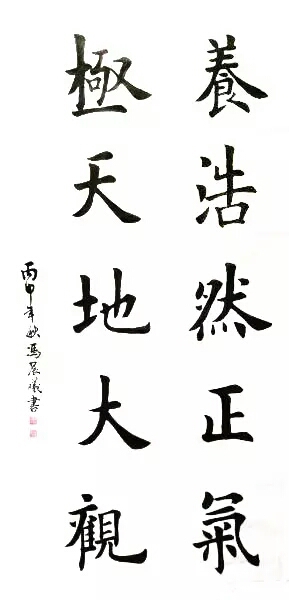 養浩然正氣
極天地大觀
丙申年秋馮晨曦書